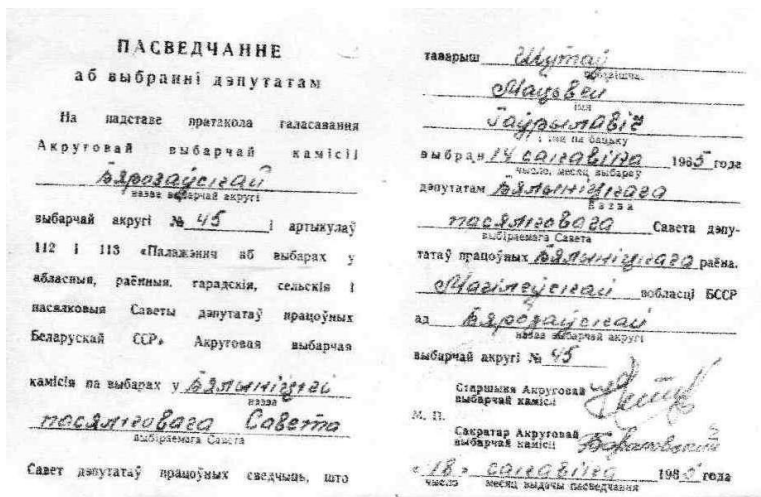 ПАСВЕДЧАННЕ
аб выбранні дэпутатам
На падставе пратакола галасавання
Акруговай выбарчай камісіі
Бярозаўскай
назва выбарчай акругі
выбарчай акругі № 45 і артыкулаў
112 і 113 «Палажэння аб выбарах у
абласныя, раённыя, гарадскія, сельскія і
пасялковыя Саветы дэпутатаў працоўных
Беларускай ССР» Акруговая выбарчая
камісія па выбарах у Бялыніцкі
назва
пасялковага Савета
выбіраемага Савета
Савет дэпутатаў працоўных сведчыць, што
таварыш Шутаў
прозвішча,
Мацьвей
імя
Гаўрылавіч
і імя па бацьку
выбран 14 сакавіка 1965 года
чысло, месяц выбараў
дэпутатам Бялыніцкага
назва
пасялковага Савета дэпу-
выбіраемага Савета
татаў працоўных Бялыніцкага раёна.
Магілеўскай вобласці БССР
ад Бярозаўскай
назва выбарчай акругі
выбарчай акругі № 45
Старшыня Акруговай
выбарчай камісіі
М. П.
Сакратар Акруговай
выбарчай камісіі
«18» сакавіка 1965 года
чысло месяц выдачы пасведчання